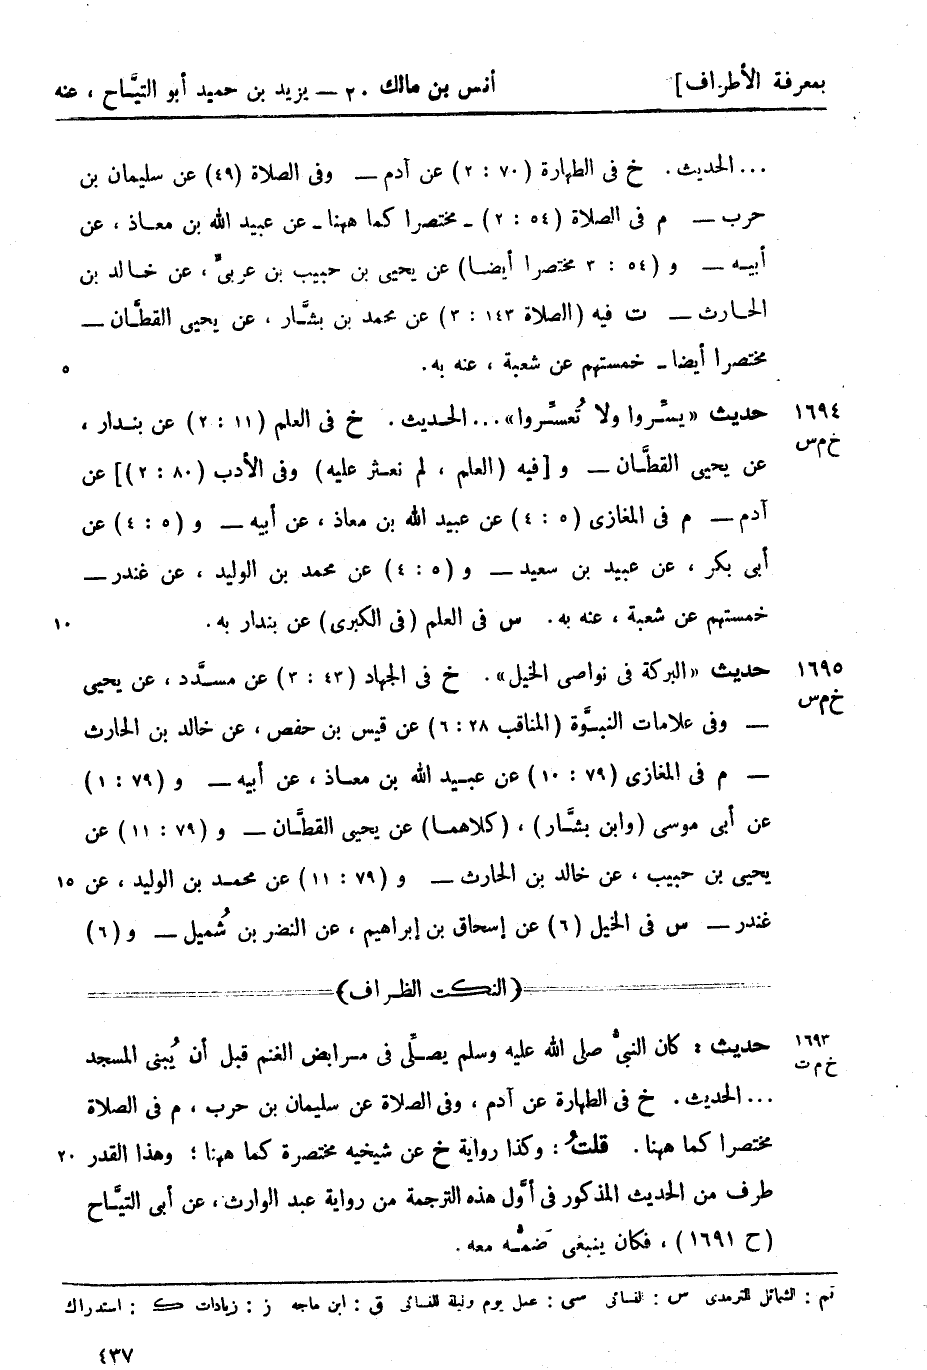 بمعرفة الأطراف] أنس بن مالك ٢٠ — يزيد بن حميد أبو التيَّاح ، عنه
... الحديث . خ فى الطهارة (٧٠ : ٢) عن آدم — وفى الصلاة (٤٩) عن سليمان بن
حرب — م فى الصلاة (٥٤ : ٢) ـ مختصرا كما ههنا ـ عن عبيد الله بن معاذ ، عن
أبيه — و (٥٤ : ٣ مختصرا أيضا) عن يحيى بن حبيب بن عربىّ ، عن خالد بن
الحارث — ت فيه (الصلاة ١٤٣ : ٣) عن محمد بن بشَّار ، عن يحيى القطَّان —
مختصرا أيضا ـ خمستهم عن شعبة ، عنه به . ٥
١٦٩٤ حديث «يسِّروا ولا تُعسِّروا» ... الحديث . خ فى العلم (١١ : ٢) عن بندار ،
خ م س عن يحيى القطَّان — و [فيه (العلم ، لم نعثر عليه) وفى الأدب (٨٠ : ٢)] عن
آدم — م فى المغازى (٥ : ٤) عن عبيد الله بن معاذ ، عن أبيه — و (٥ : ٤) عن
أبى بكر ، عن عبيد بن سعيد — و (٥ : ٤) عن محمد بن الوليد ، عن غندر —
خمستهم عن شعبة ، عنه به . س فى العلم (فى الكبرى) عن بندار به . ١٠
١٦٩٥ حديث «البركة فى نواصى الخيل» . خ فى الجهاد (٤٣ : ٣) عن مسدَّد ، عن يحيى
خ م س — وفى علامات النبوَّة (المناقب ٢٨ : ٦) عن قيس بن حفص ، عن خالد بن الحارث
— م فى المغازى (٧٩ : ١٠) عن عبيد الله بن معاذ ، عن أبيه — و (٧٩ : ١)
عن أبى موسى (وابن بشَّار) ، (كلاهما) عن يحيى القطَّان — و (٧٩ : ١١) عن
يحيى بن حبيب ، عن خالد بن الحارث — و (٧٩ : ١١) عن محمد بن الوليد ، عن ١٥
غندر — س فى الخيل (٦) عن إسحاق بن إبراهيم ، عن النضر بن شُميل — و (٦)
(النكت الظراف)
١٦٩٣ حديث : كان النبىّ صلى الله عليه وسلم يصلِّى فى مرابض الغنم قبل أن يُبنى المسجد
خ م ت ... الحديث . خ فى الطهارة عن آدم ، وفى الصلاة عن سليمان بن حرب ، م فى الصلاة
مختصرا كما ههنا . قلتُ : وكذا رواية خ عن شيخيه مختصرة كما ههنا ؛ وهذا القدر ٢٠
طرف من الحديث المذكور فى أوَّل هذه الترجمة من رواية عبد الوارث ، عن أبى التيَّاح
(ح ١٦٩١) ، فكان ينبغى ضمُّه معه .
تم : الشمائل للترمذى س : النسائى سى : عمل يوم وليلة للنسائى ق : ابن ماجه ز : زيادات ك : استدراك
٤٣٧